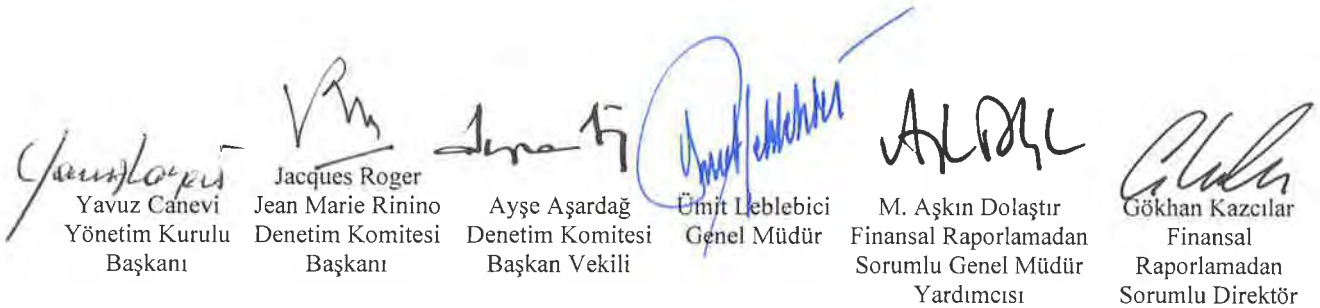 Yavuz Canevi
Yönetim Kurulu
Başkanı
Jacques Roger
Jean Marie Rinino
Denetim Komitesi
Başkanı
Ayşe Aşardağ
Denetim Komitesi
Başkan Vekili
Ümit Leblebici
Genel Müdür
M. Aşkın Dolaştır
Finansal Raporlamadan
Sorumlu Genel Müdür
Yardımcısı
Gökhan Kazcılar
Finansal
Raporlamadan
Sorumlu Direktör